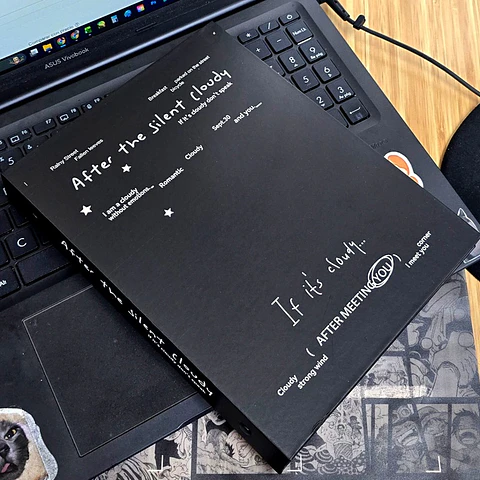 ASUS Vivobook
Breakfast
parked on the street
bicycle
After the silent cloudy
If it's cloudy don't speak
Rainy Street
Fallen leaves
Sept.30
and you......
Cloudy
Romantic
I am a cloudy
without emotions...
If it's cloudy...
( AFTER MEETING YOU )
corner
i meet you
Cloudy
strong wind
After the silent cloudy